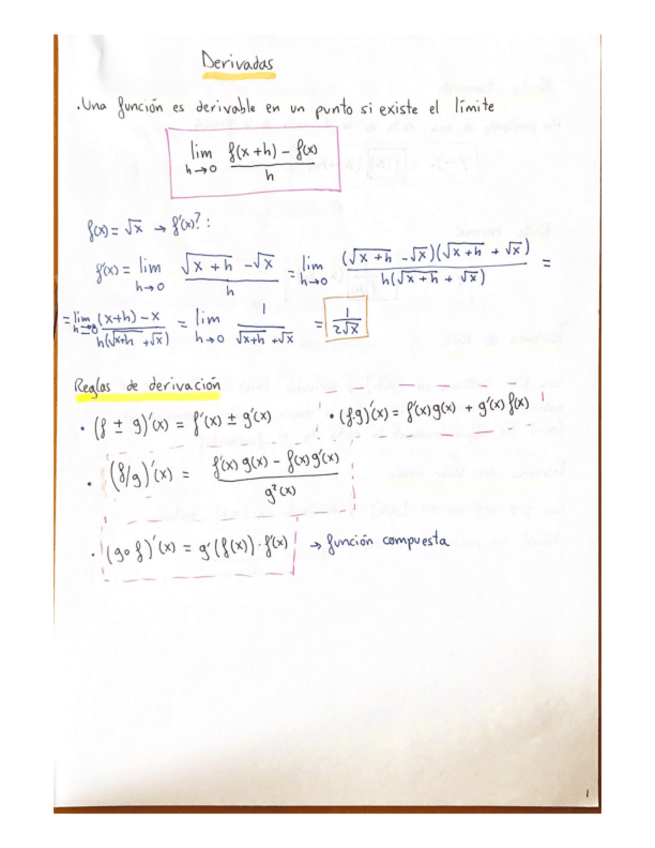 Derivadas
· Una función es derivable en un punto si existe el límite
lim h→0 (f(x+h) - f(x)) / h
f(x) = √x → f'(x)? :
f'(x) = lim h→0 (√(x+h) - √x) / h = lim h→0 ((√(x+h) - √x)(√(x+h) + √x)) / (h(√(x+h) + √x)) =
= lim h→0 ((x+h) - x) / (h(√(x+h) + √x)) = lim h→0 1 / (√(x+h) + √x) = 1 / (2√x)
Reglas de derivación
· (f ± g)'(x) = f'(x) ± g'(x)
· (f·g)'(x) = f'(x)g(x) + g'(x)f(x)
· (f/g)'(x) = (f'(x)g(x) - f(x)g'(x)) / g²(x)
· (g∘f)'(x) = g'(f(x))·f'(x) → función compuesta
1